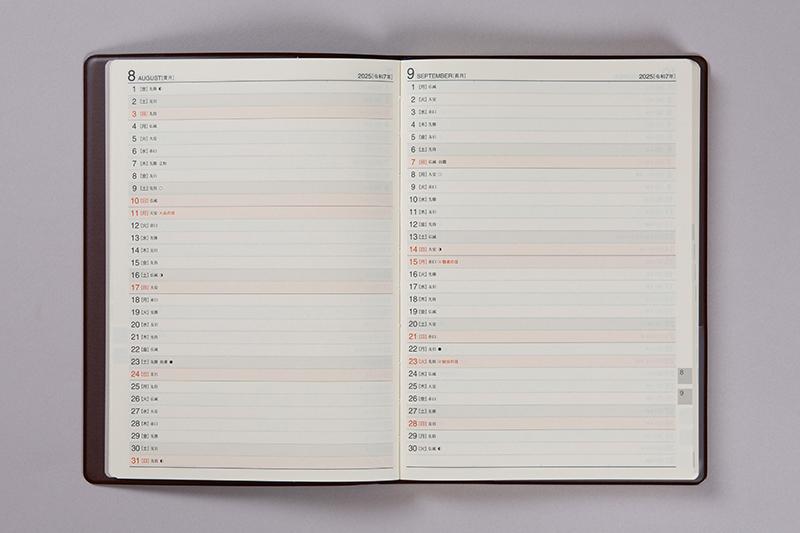 8 AUGUST[葉月] 2025[令和7年]
1 [金] 先勝
2 [土] 友引
3 [日] 先負
4 [月] 仏滅
5 [火] 大安
6 [水] 赤口
7 [木] 先勝 立秋
8 [金] 友引
9 [土] 先負
10 [日] 仏滅
11 [月] 大安 山の日
12 [火] 赤口
13 [水] 先勝
14 [木] 友引
15 [金] 先負
16 [土] 仏滅
17 [日] 大安
18 [月] 赤口
19 [火] 先勝
20 [水] 友引
21 [木] 先負
22 [金] 仏滅
23 [土] 先勝 処暑
24 [日] 友引
25 [月] 先負
26 [火] 仏滅
27 [水] 大安
28 [木] 赤口
29 [金] 先勝
30 [土] 友引
31 [日] 先負
9 SEPTEMBER[長月] 2025[令和7年]
1 [月] 仏滅
2 [火] 大安
3 [水] 赤口
4 [木] 先勝
5 [金] 友引
6 [土] 先負
7 [日] 仏滅 白露
8 [月] 大安
9 [火] 赤口
10 [水] 先勝
11 [木] 友引
12 [金] 先負
13 [土] 仏滅
14 [日] 大安
15 [月] 赤口 敬老の日
16 [火] 先勝
17 [水] 友引
18 [木] 先負
19 [金] 仏滅
20 [土] 大安
21 [日] 赤口
22 [月] 友引
23 [火] 先負 秋分の日
24 [水] 仏滅
25 [木] 大安
26 [金] 赤口
27 [土] 先勝
28 [日] 友引
29 [月] 先負
30 [火] 仏滅
8
9